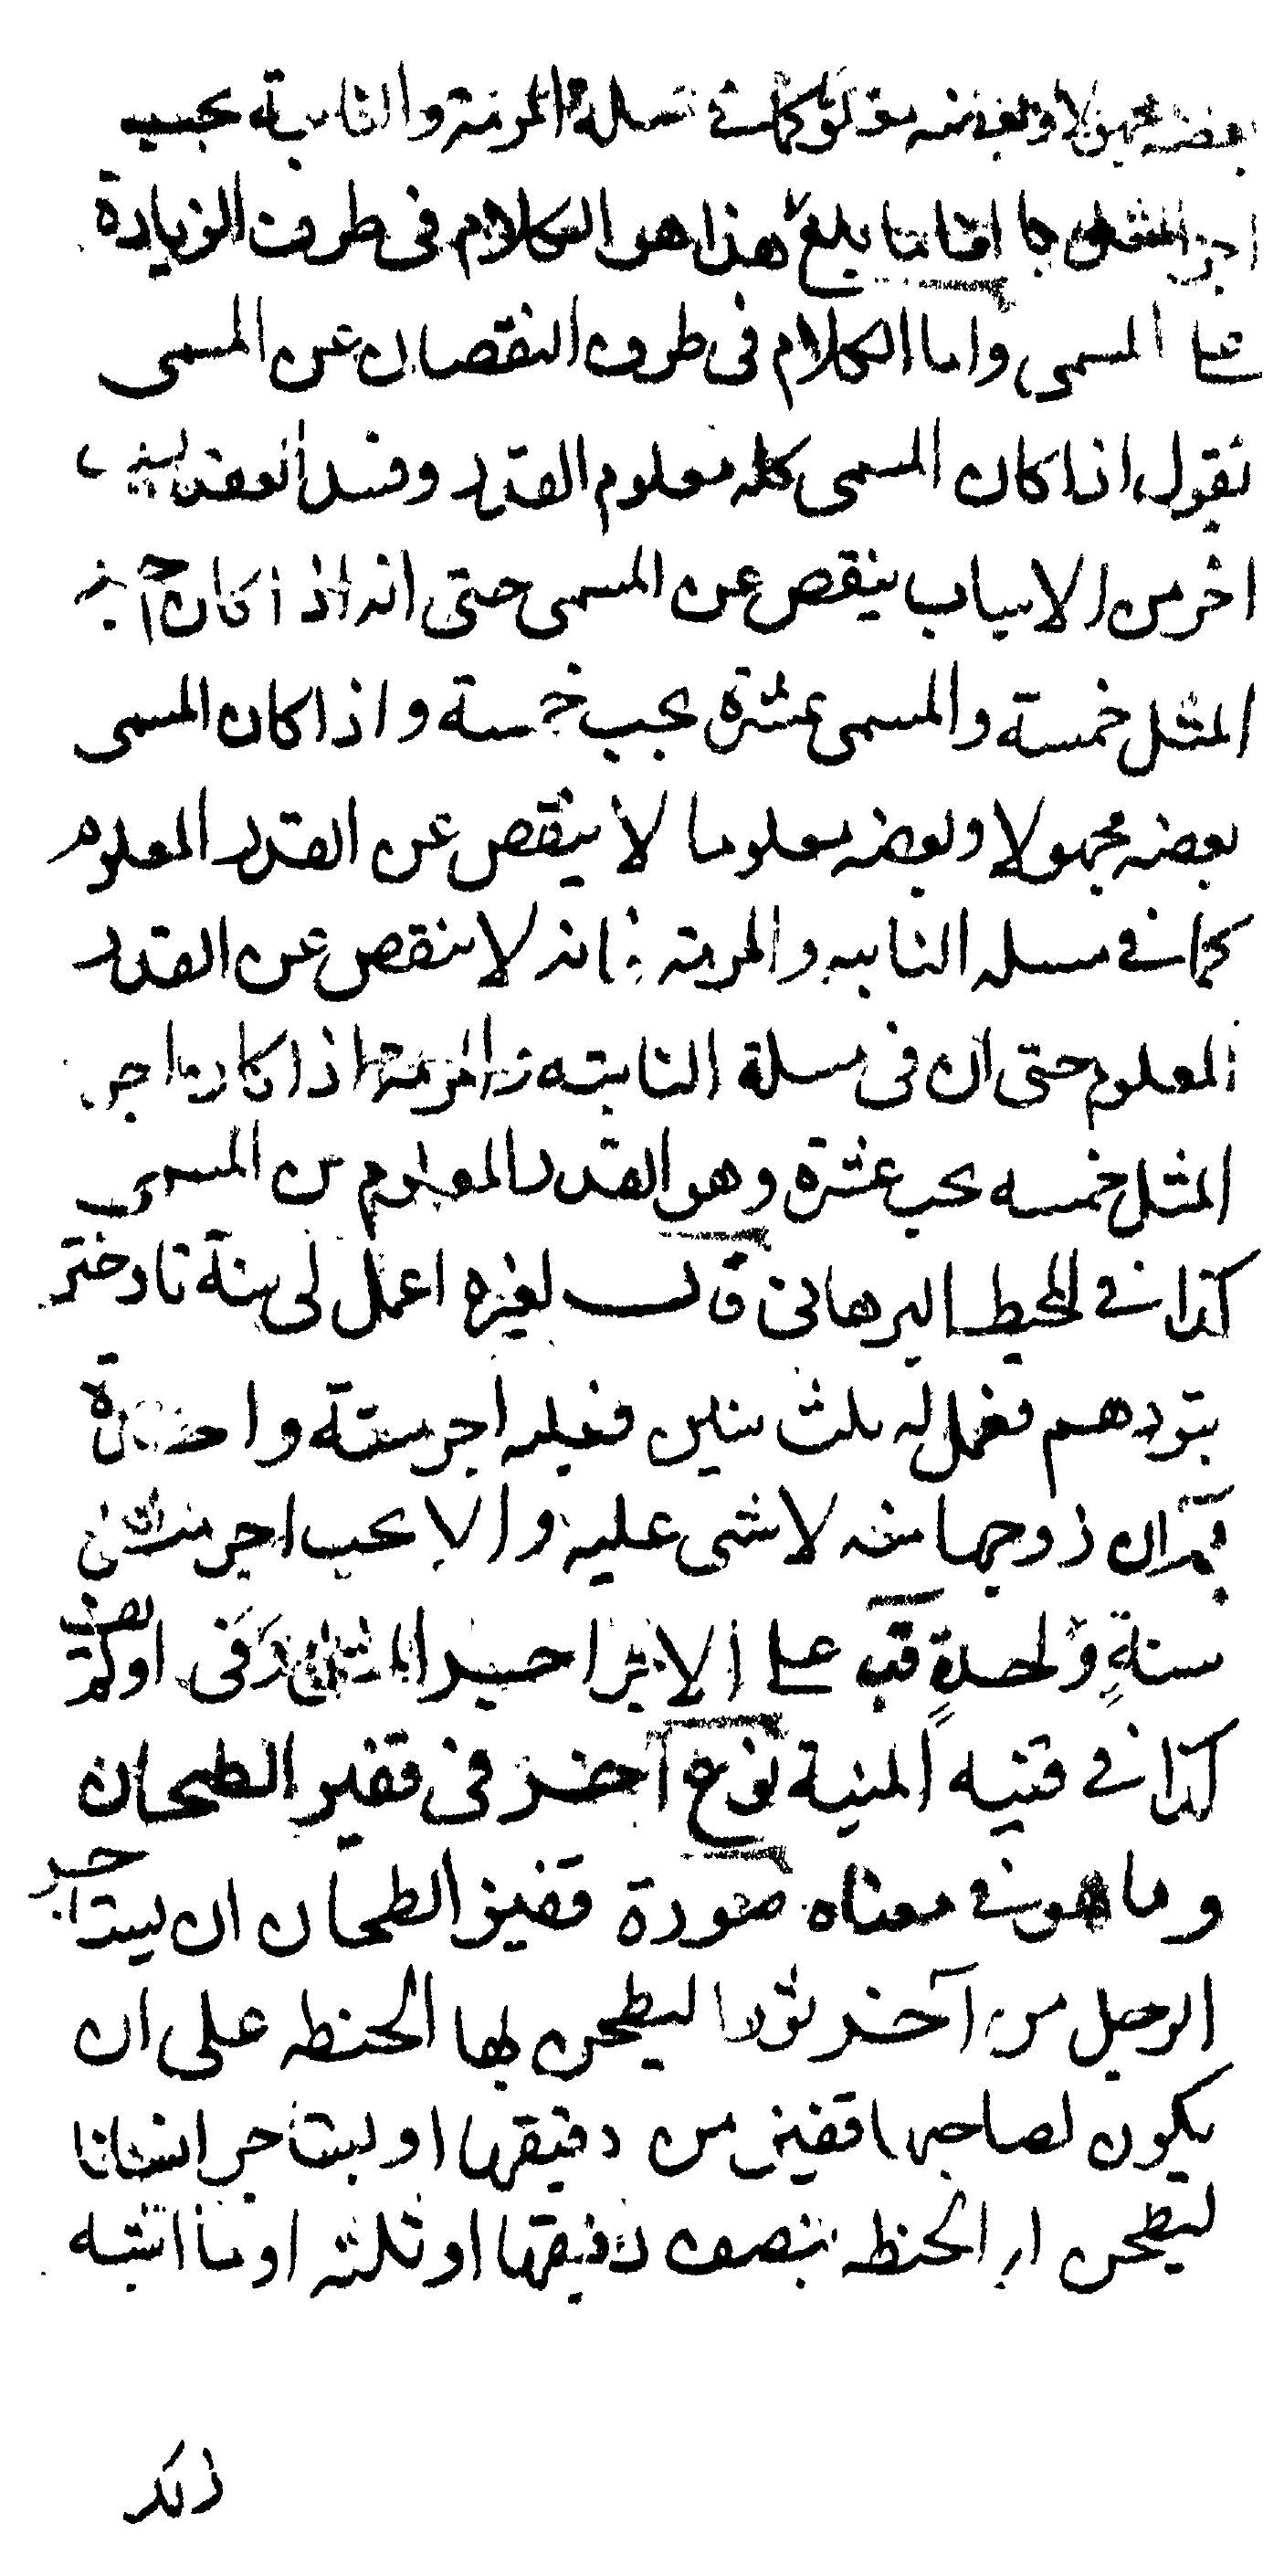 بعضه مجهولا وبعضه معلوما كما في مسئلة المرمة والنائبة يجب
اجر المثل بالغا ما بلغ هذا هو الكلام فى طرف الزيادة
على المسمى واما الكلام فى طرف النقصان عن المسمى
نقول اذا كان المسمى كله معلوم القدر وفسد العقد بسبب
اخر من الاسباب ينقص عن المسمى حتى انه اذا كان اجر
المثل خمسة والمسمى عشرة يجب خمسة واذا كان المسمى
بعضه مجهولا وبعضه معلوما لا ينقص عن القدر المعلوم
كما في مسله النايبه والمرمة فانه لا ينقص عن القدر
المعلوم حتى ان فى مسلة النايبة والمرمة اذا كان اجر
المثل خمسه يجب عشرة وهو القدر المعلوم من المسمى
كذا في المحيط البرهانى قال لغيره اعمل لى سنة تا دختر
بتو دهم فعمل له ثلث سنين فعليه اجر سنة واحدة
ثم ان زوجها منه لا شى عليه والا يجب اجر مثله في
سنةٍ واحدةٍ قب على الاب اجر المثل زفى او لم تزف
كذا في قنيه المنية نوع آخر فى قفيز الطحان
وما هو في معناه صورة قفيز الطحان ان يستاجر
الرجل من آخر ثورا ليطحن بها الحنطه على ان
يكون لصاحبها قفيز من دقيقها او يستاجر انسانا
ليطحن له الحنطه بنصف دقيقها او ثلثه او ما اشبه
ذلك